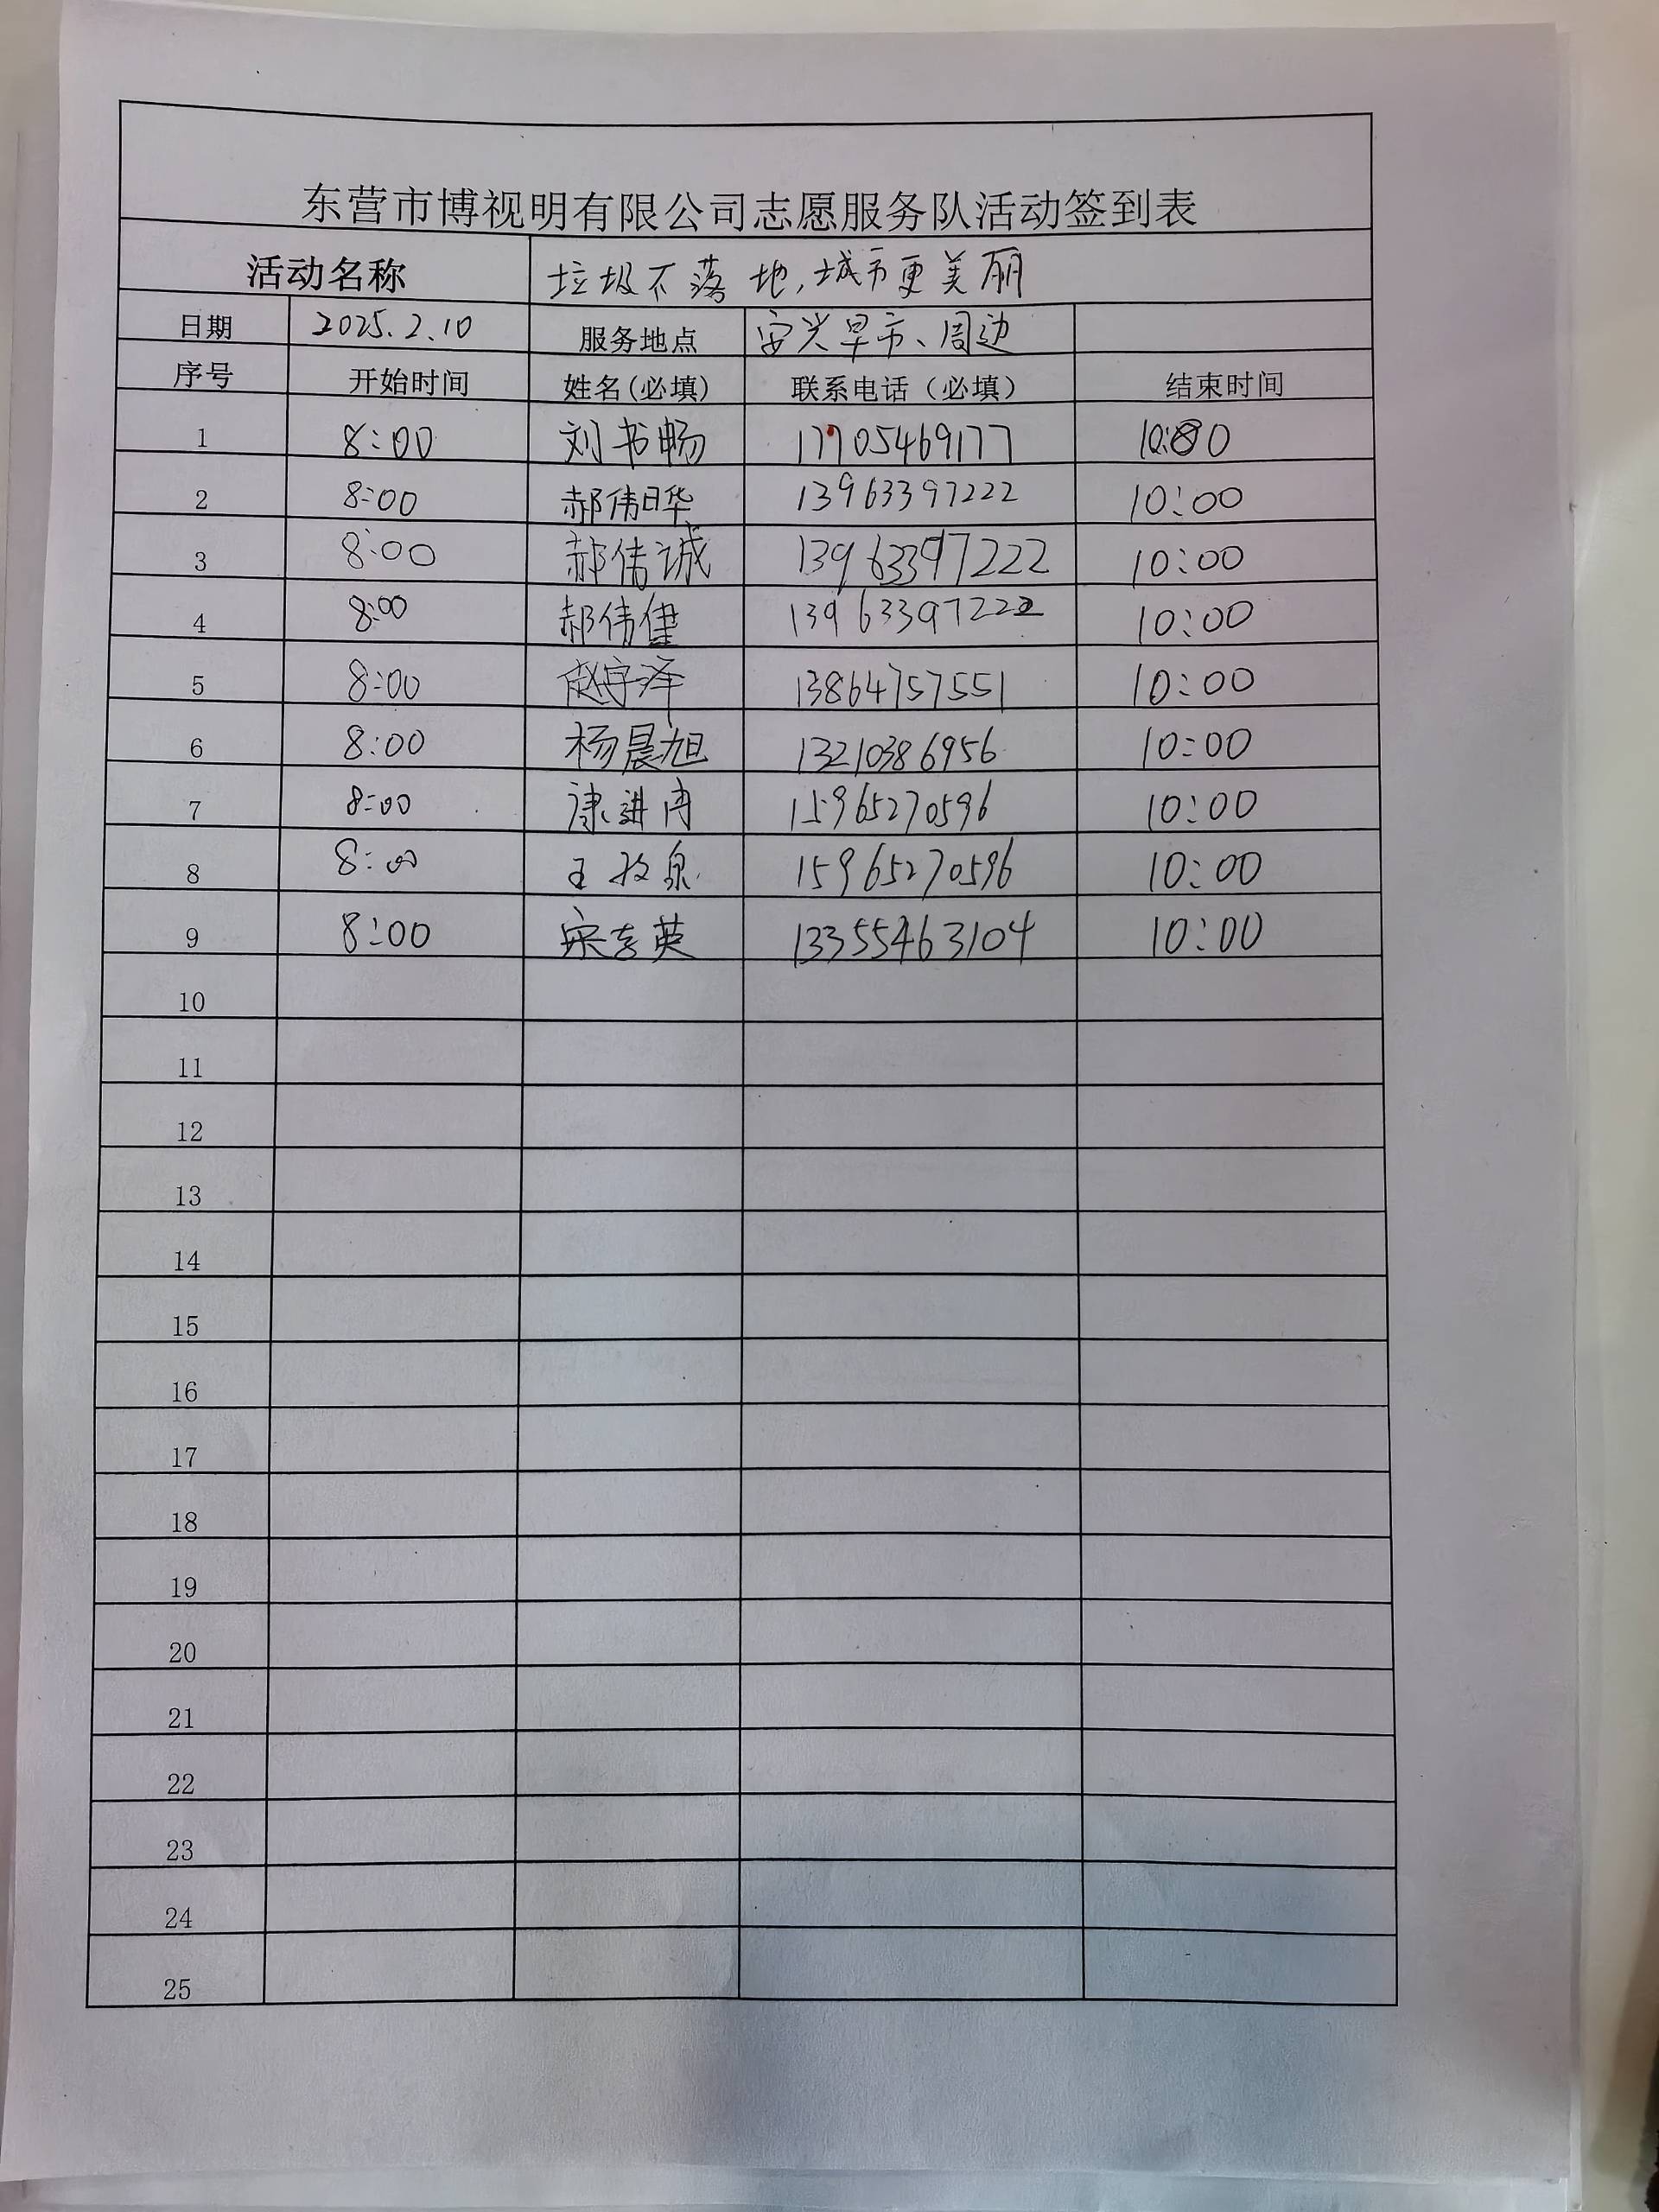 东营市博视明有限公司志愿服务队活动签到表
活动名称 垃圾不落地,城市更美丽
日期 2025.2.10 服务地点 安兴早市、周边
序号 开始时间 姓名(必填) 联系电话(必填) 结束时间
1 8:00 刘书畅 17705469177 10:00
2 8:00 郝伟晔 13963397222 10:00
3 8:00 郝伟诚 13963397222 10:00
4 8:00 郝伟健 13963397222 10:00
5 8:00 赵宇泽 13864757551 10:00
6 8:00 杨晨旭 13210386956 10:00
7 8:00 康进冉 15965270596 10:00
8 8:00 王 15965270596 10:00
9 8:00 英 13355463104 10:00
10
11
12
13
14
15
16
17
18
19
20
21
22
23
24
25